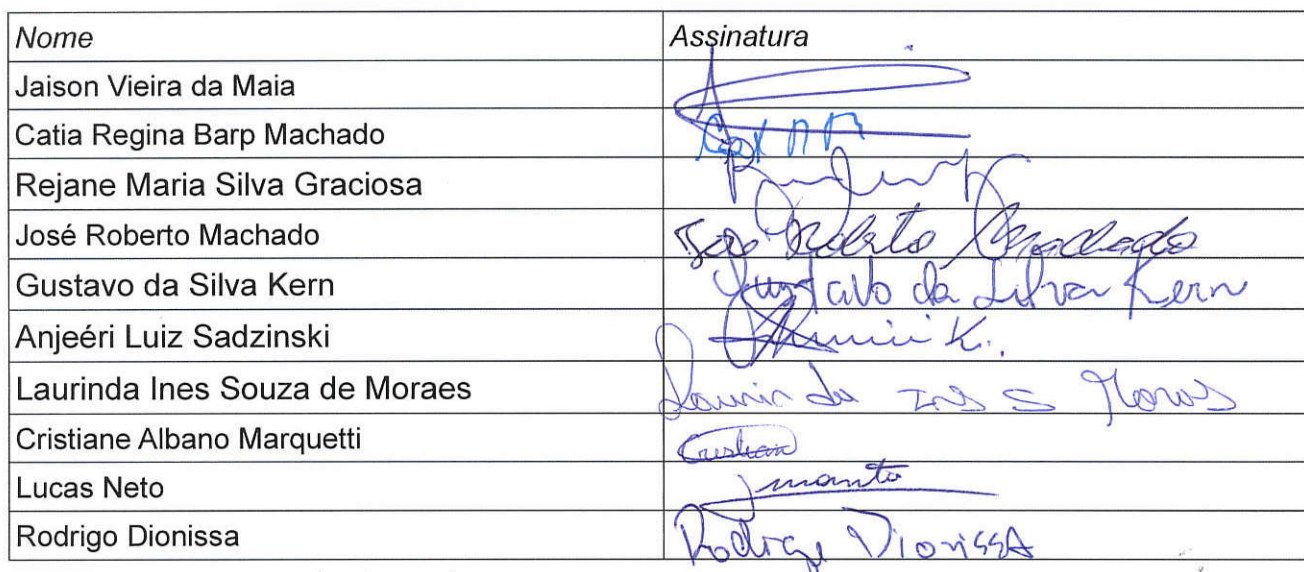 Nome Assinatura
Jaison Vieira da Maia
Catia Regina Barp Machado
Rejane Maria Silva Graciosa
José Roberto Machado José Roberto Machado
Gustavo da Silva Kern Gustavo da Silva Kern
Anjeéri Luiz Sadzinski
Laurinda Ines Souza de Moraes Laurinda Ins S Moraes
Cristiane Albano Marquetti
Lucas Neto
Rodrigo Dionissa Rodrigo Dionissa